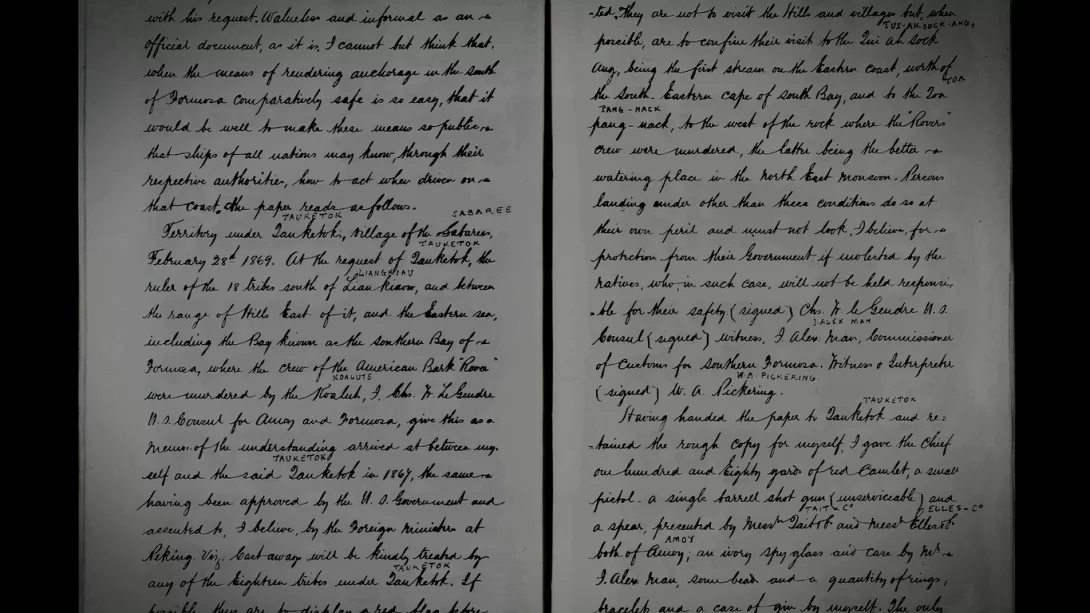 with his request. Valueless and informal as an
official document, as it is, I cannot but think that,
when the means of rendering anchorage in the south
of Formosa comparatively safe is so easy, that it
would be well to make these means so public
that ships of all nations may know, through their
respective authorities, how to act when driven on
that coast. The paper reads as follows.
TAUKETOK
SABAREE
Territory under Tauketok, village of the Sabarees,
TAUKETOK
February 28th 1869. At the request of Tauketok, the
LIANGKIAU
ruler of the 18 tribes south of Liankiaou, and between
the range of Hills East of it, and the Eastern sea,
including the Bay known as the southern Bay of
Formosa, where the crew of the American Bark "Rova"
KOALUTS
were murdered by the Koaluts, I, Chs. W. LeGendre
U.S. Consul for Amoy and Formosa, give this as a
memo. of the understanding arrived at between my-
TAUKETOK
self and the said Tauketok in 1867, the same
having been approved by the U. S. Government and
assented to, I believe, by the Foreign Ministers at
Peking. Viz; Cast aways will be kindly treated by
TAUKETOK
any of the Eighteen tribes under Tauketok. If
possible, they are to display a red flag before
-ted. They are not to visit the Hills and villages but, when
TUI-AH SOCK-ANG,
possible, are to confine their visit to the Tui Ah Sock
Ang, being the first stream on the Eastern coast, north of
TOA
the South-Eastern cape of south Bay, and to the Toa
PANG-NACK
pang-nack, to the west of the rock where the "Rovers"
crew were murdered, the latter being the better
watering place in the North East monsoon. Persons
landing under other than these conditions do so at
their own peril and must not look, I believe, for
protection from their Government if molested by the
natives, who, in such case, will not be held responsi-
-ble for their safety (signed) Chs. W. le Gendre U. S.
J. ALEX MAN
Consul (signed) witness, J. Alex. Man, Commissioner
of Customs for southern Formosa. Witness & Interpreter
W.A PICKERING.
(signed) W. A. Pickering.
TAUKETOK
Having handed the paper to Tauketok and re=
-tained the rough copy for myself, I gave the Chief
one hundred and Eighty yards of red Camlet, a small
pistol - a single barrell shot gun (unserviceable) and
TAIT & Co
ELLES & Co
a spear, presented by Messrs Tait & Co and Messrs Elles & Co
AMOY
both of Amoy; an ivory spy glass and case by Mr.
J. Alex. Man, some bead and a quantity of rings,
bracelets and a case of gin by myself. The only